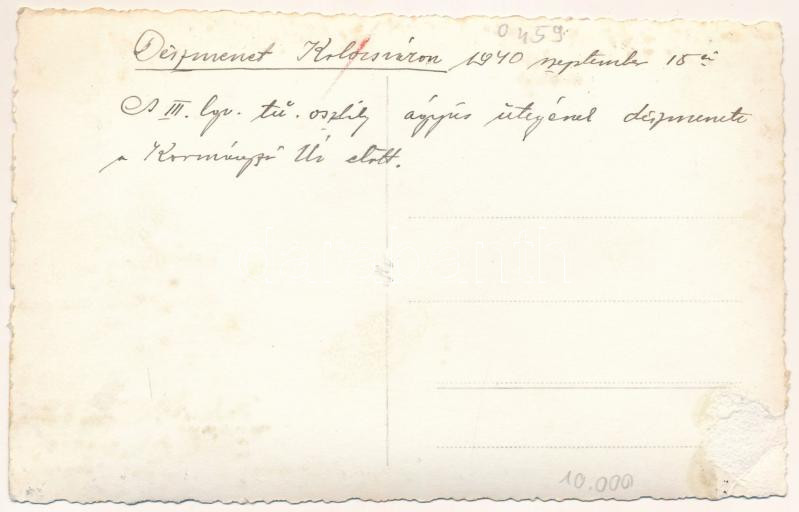 0459
Díszmenet Kolozsváron 1940 szeptember 15 én
A III. lgv. tü. osztály ágyús ütegének díszmenete
a Kormányzó Úr előtt.
10.000